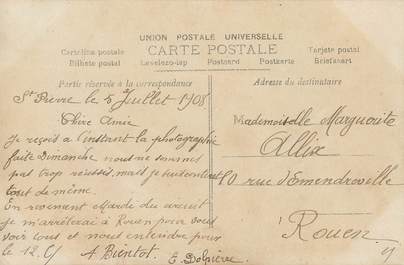 UNION POSTALE UNIVERSELLE
CARTE POSTALE
Cartolina postale
Bilhete postal
Levelezo-lap
Postcard
Postkarte
Postcarte
Tarjeta postal
Briefkaart
Partie réservée à la correspondance
St Pierre le 5 Juillet 1908
Chère Amie
Je reçois à l'instant la photographie
faite Dimanche nous ne sommes
pas trop réussis, mais je suis content
tout de même.
En revenant Mardi du circuit
je m'arrêterai à Rouen pour vous
voir tous et nous entendre pour
le 12. A Bientôt.
E. Delpierre
Adresse du destinataire
Mademoiselle Marguerite
Allix
10 rue d'Emendreville
Rouen